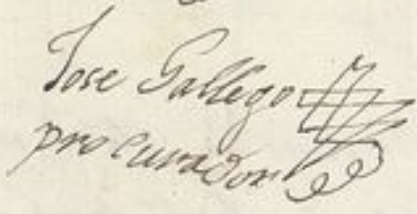 Jose Gallego
procurador